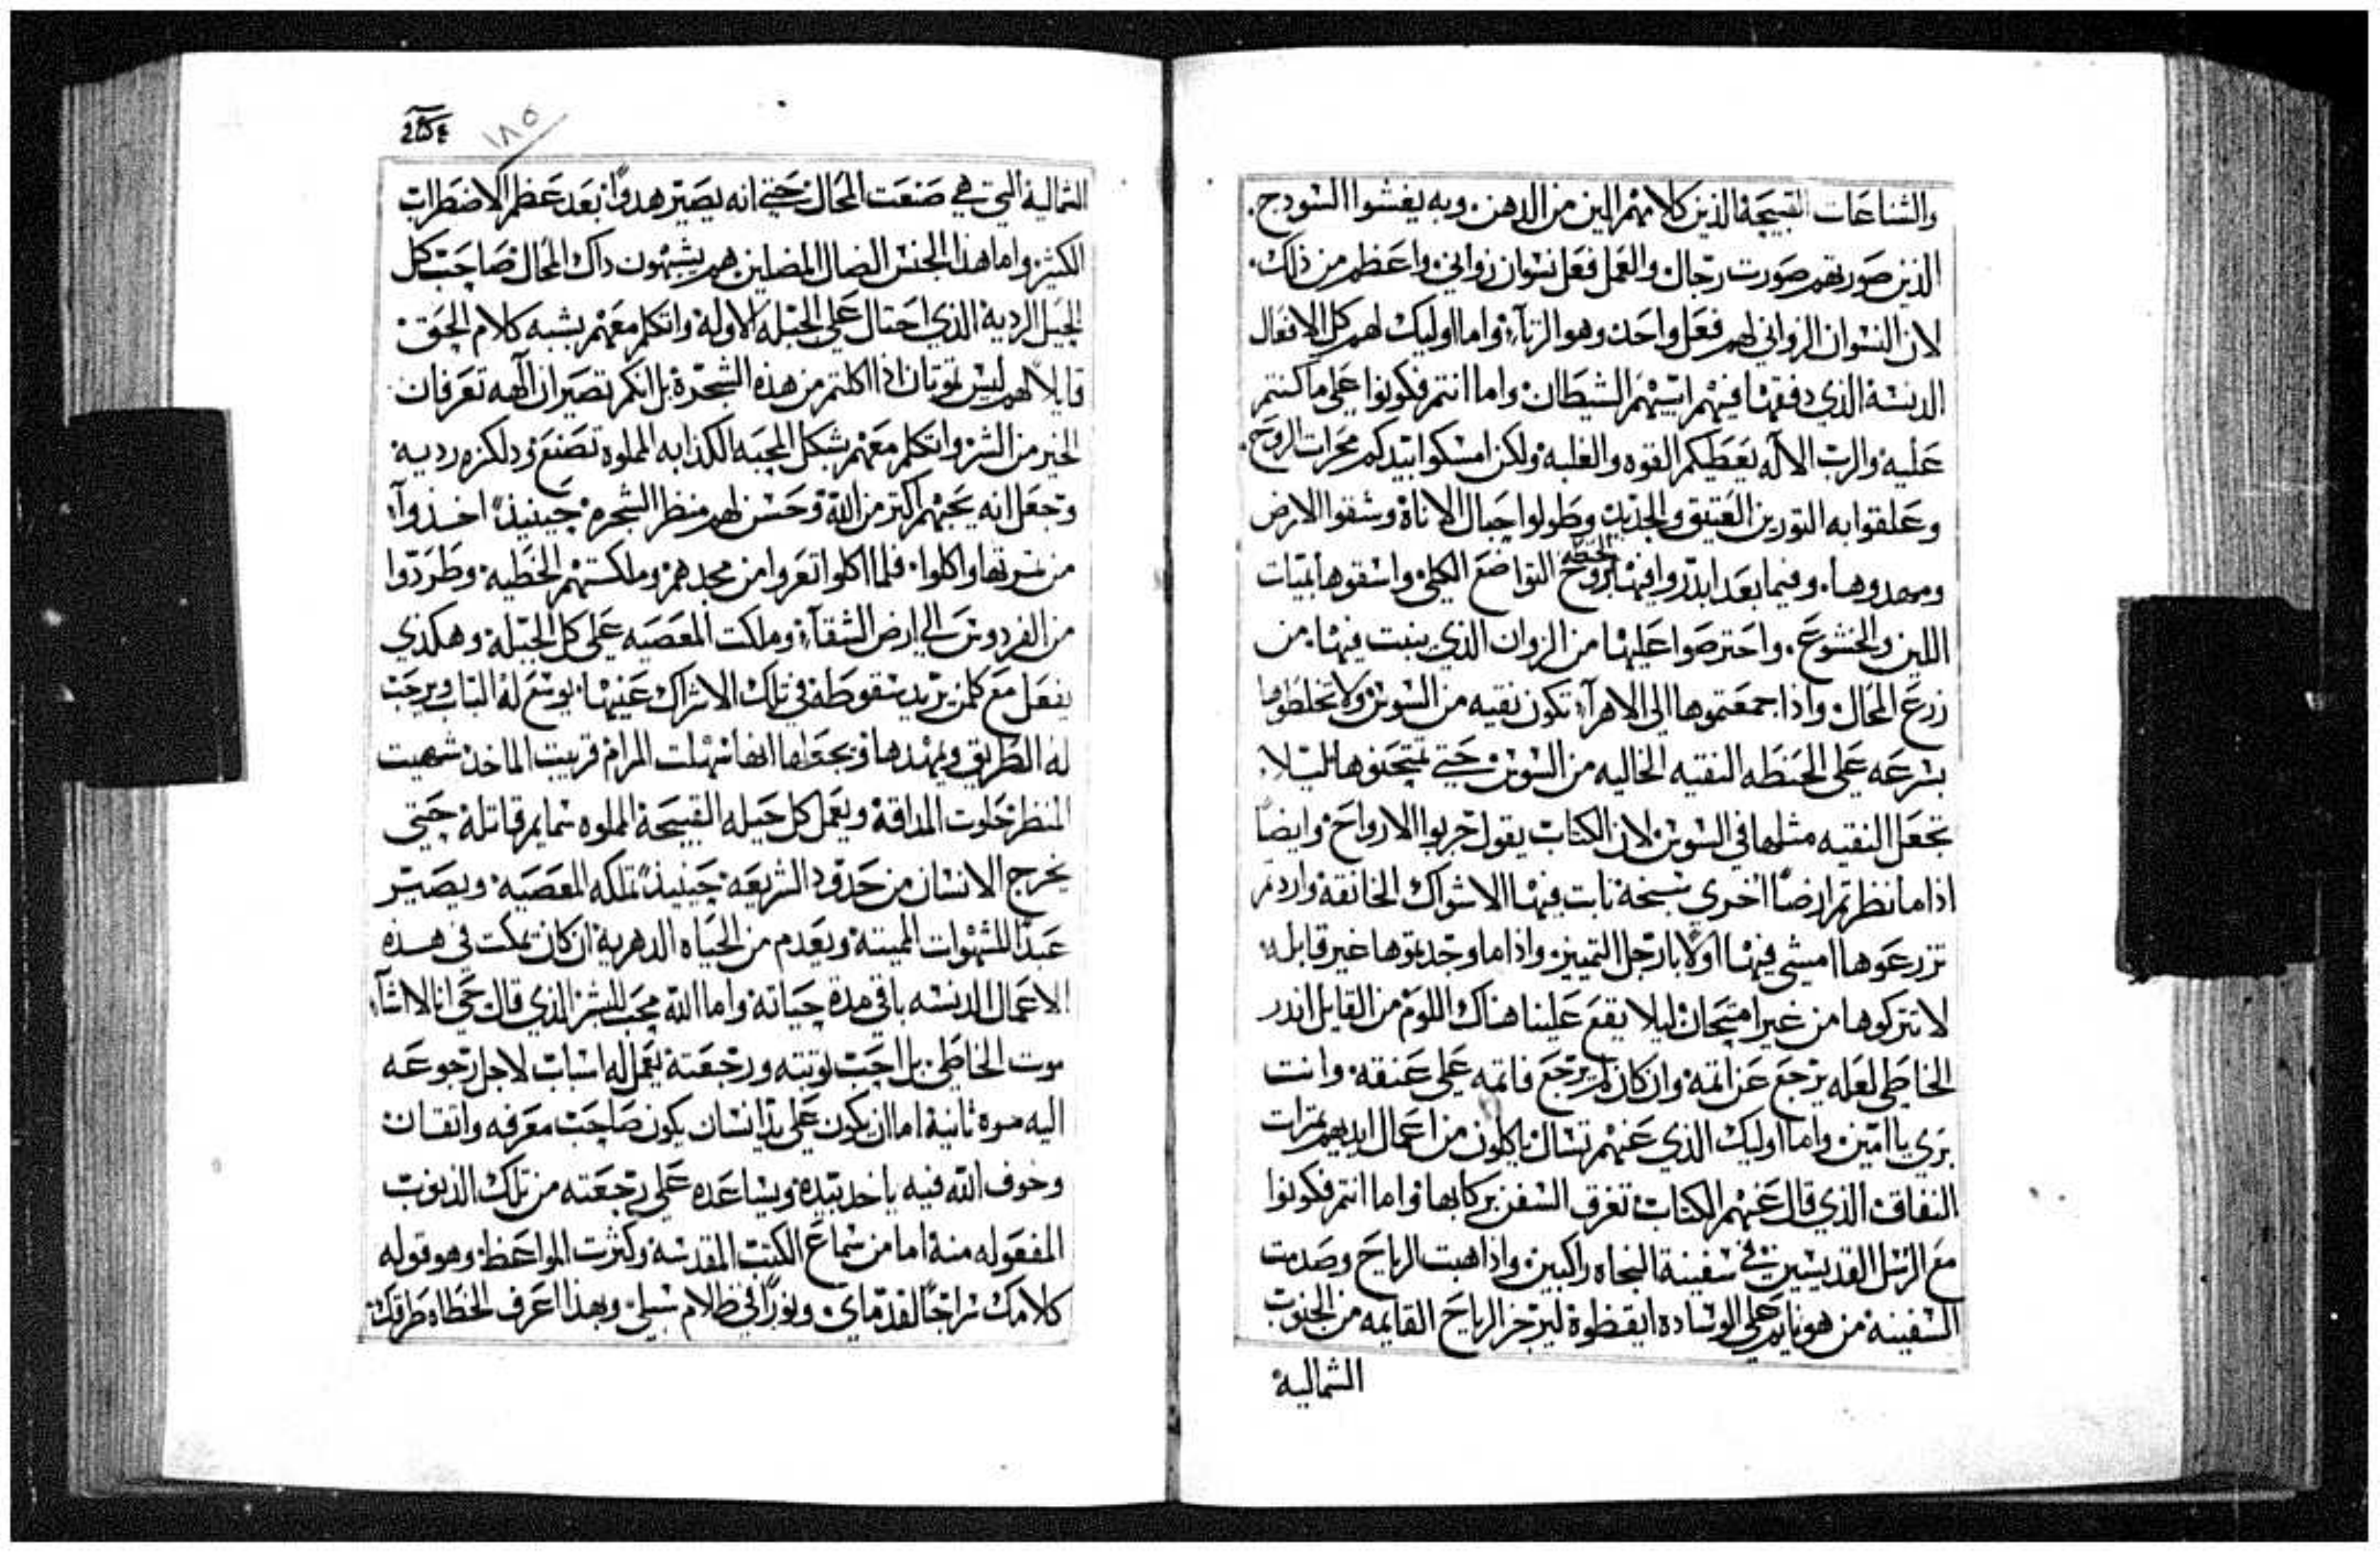 والشناعات القبيحة الذين كلامهم الين من الدهن. وبه يغشوا السودج.
الذين صورتهم صورت رجال والفعل فعل نسوان زواني. واعظم من ذلك.
لان النسوان الزواني لهم فعل واحد وهو الزناء. واما اوليك لهم كل الافعال
الدنسة الذي دفقها فيهم ابيهم الشيطان. واما انتم فكونوا على ما كنتم
عليه والرب الاله يعطيكم القوه والغلبه ولكن امسكوا بيدكم محرات الروح.
وعلقوا به التورين العتيق والجديد وطولوا حبال الاناة وشقوا الارض
ومهدوها. وفيما بعد ابدروا فيها بروح الحنطه التواضع الكلي واسقوها بميات
اللين والخشوع. واحترصوا عليها من الزوان الذي ينبت فيها. من
زرع المحال واذا جمعتموها الى الاهراء تكون نقيه من السوس ولا تخلطوها
بسرعه على الحنطه النقيه الخاليه من السوس حتي تمتحنوها ليلا
تجعل النقيه مثلها في السوس لان الكتاب يقول جربوا الارواح وايضاً
اذا ما نظرتم ارضاً اخرى سبخة نابت فيها الاشواك الخانقة واردتم
تزرعوها امشي فيها اولاً بارجل التمييز. واذا ما وجدتموها غير قابله
لا تتركوها من غير امتحان ليلا يقع علينا هناك اللوم من القايل اندر
الخاطي لعله يرجع عن اتمه وان كان لم يرجع فاتمه على عنقه. وانت
بري يا امين. واما اوليك الذي عنهم تسال ياكلون من اعمال ايديهم تمرات
النفاق الذي قال عنهم الكتاب تغرق السفن بركابها واما انتم فكونوا
مع الرسل القديسين في سفينة النجاه راكبين واذا هبت الرياح وصدمت
السفينة من هو نايم على الوساده ايقظوة ليزجر الرياح القايمه من الجنوب
الشمالية
٢٥٤
١٨٥
الشمالية التي هي صنعت المحال حتى انه يصير هدواً بعد عظم الاضطراب
الكثير واما هذا الجنس الضال المضلين هم يشبهون داك المحال صاحب كل
الحيل الردية الذي احتال على الجبله الاوله واتكلم معهم بشبه كلام الحق
قايلاً لهم ليس تموتان اذا اكلتم من هذه الشجرة بل انكم تصيران الهه تعرفان
الخير من الشر واتكلم معهم بشكل المحبه الكدابه المملوه تصنع ردية
وجعل انه يحبهم اكتر من الله وحسن لهم منظر الشجره. حينيذاً اخذوا
من تمرتها واكلوا. فلما اكلوا تعروا من مجدهم وملكتهم الخطيه. وطردوا
من الفردوس الى ارض الشقاء وملكت المعصيه على كل الجبله وهكذي
يفعل مع كلمن يريد سقوطه في تلك الاشراك عنيها. يوسع له الباب ويرحب
له الطريق ويمهدها ويجعلها انها سهلت المرام قريبت الماخذ شهيت
المنظر حلوت المداقة ويعمل كل حيله القبيحة المملوه سمايم قاتلة حتي
يخرج الانسان من حدود الشريعه. حينيذاً تملكه المعصيه. ويصير
عبداً للشهوات المميتة ويعدم من الحياه الدهرية ان كان يمكت في هذه
الاعمال الدنسه باقي مدة حياته واما الله محب البشر الذي قال حي انا لا اشاء
موت الخاطي. بل احب توبته ورجعته يعمل له اسباب لاجل رجوعه
اليه مره ثانية اما ان يكون على يد انسان يكون صاحب معرفه واتقان
وخوف الله فيه ياخد بيده ويساعده على رجعته من تلك الذنوب
المفعوله منه اما من سماع الكتب المقدسه وكثرت المواعظ. وهو قوله
كلامك سراجاً لقدماي. ونوراً في ظلام سبيلي وبهذا اعرف الخطاه طرقك